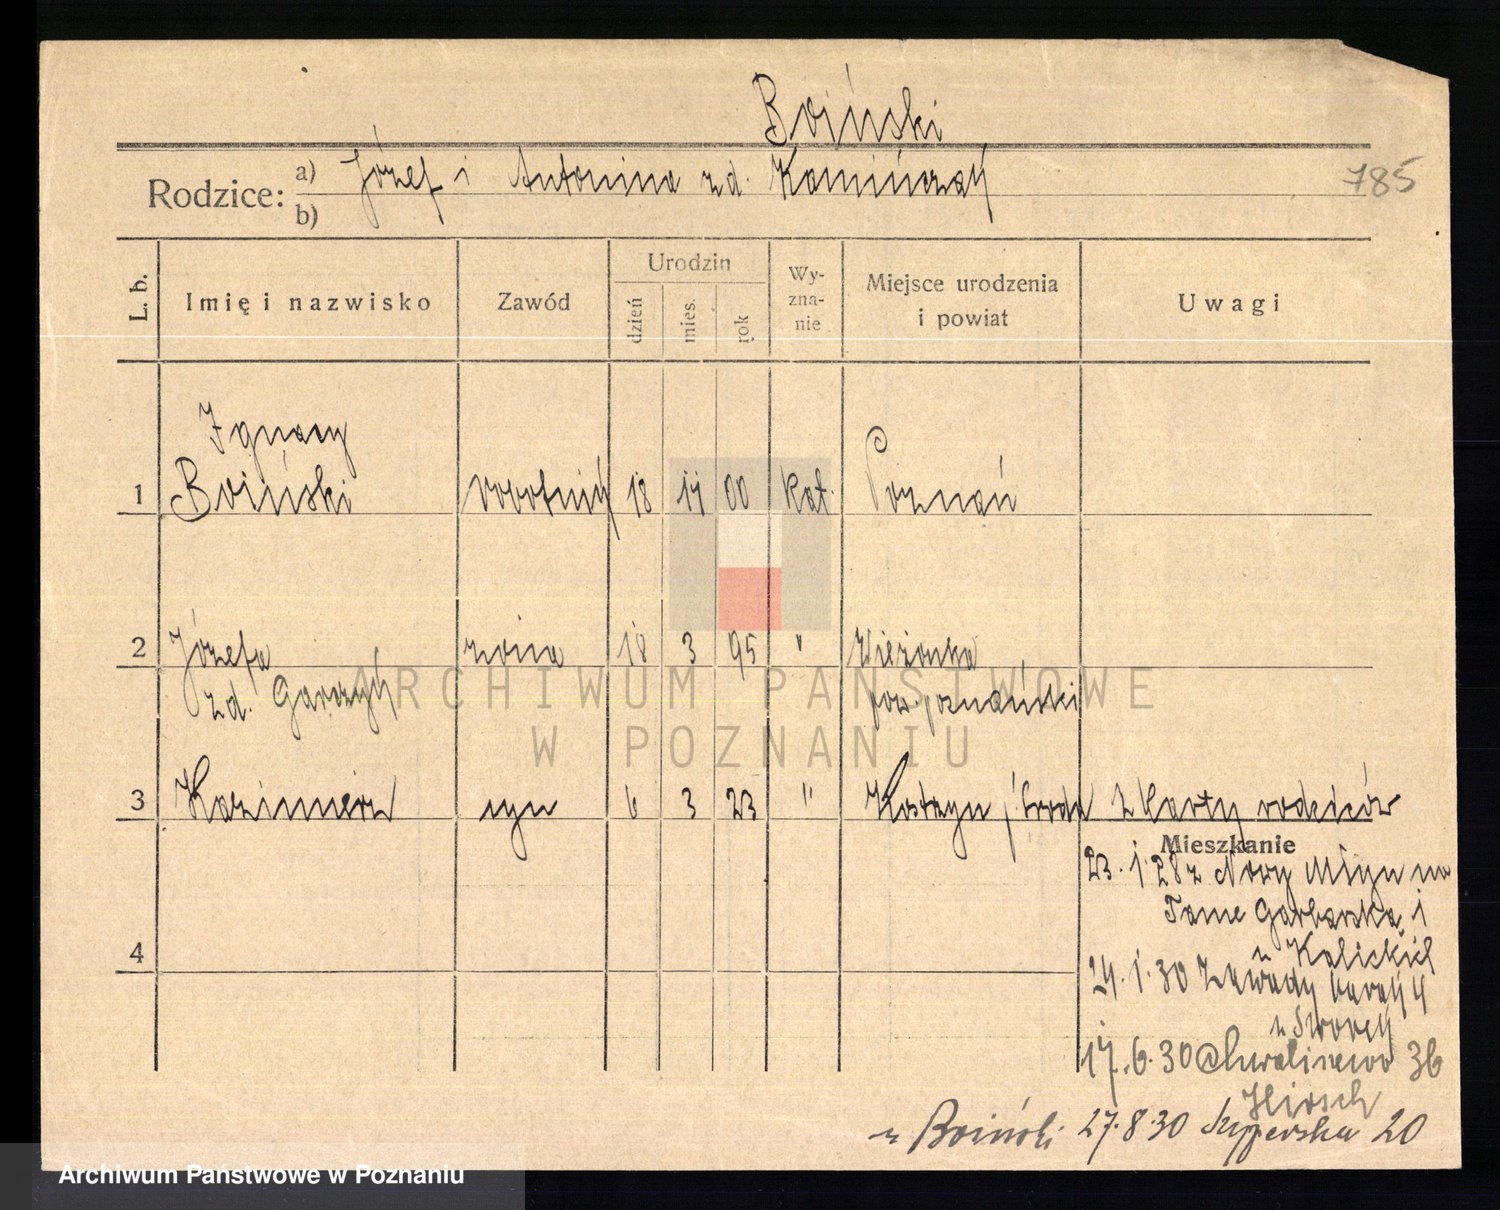 Boiński
785
Rodzice: a) Józef i Antonina zd. Kamińczak
b)
L. b. Imię i nazwisko Zawód Urodzin dzień mies. rok Wyznanie Miejsce urodzenia i powiat Uwagi
Ignacy
1 Boiński robotnik 18 00 kat. Poznań
2 Józefa żona 18 3 95 " Wierzonka
zd. Garczyk pow. poznański
3 Kazimierz syn 6 3 23 " Kostrzyn, Środa z karty rodziców
Mieszkanie
23. 1 28 z Nowy Młyn na
Tama Garbarska 1
4 u Kalickich
24. 1. 30 Zawady 4
17. 6. 30 Chwaliszewo 36
Hirsch
u Boiński 27. 8. 30 20
ARCHIWUM PAŃSTWOWE
W POZNANIU
Archiwum Państwowe w Poznaniu